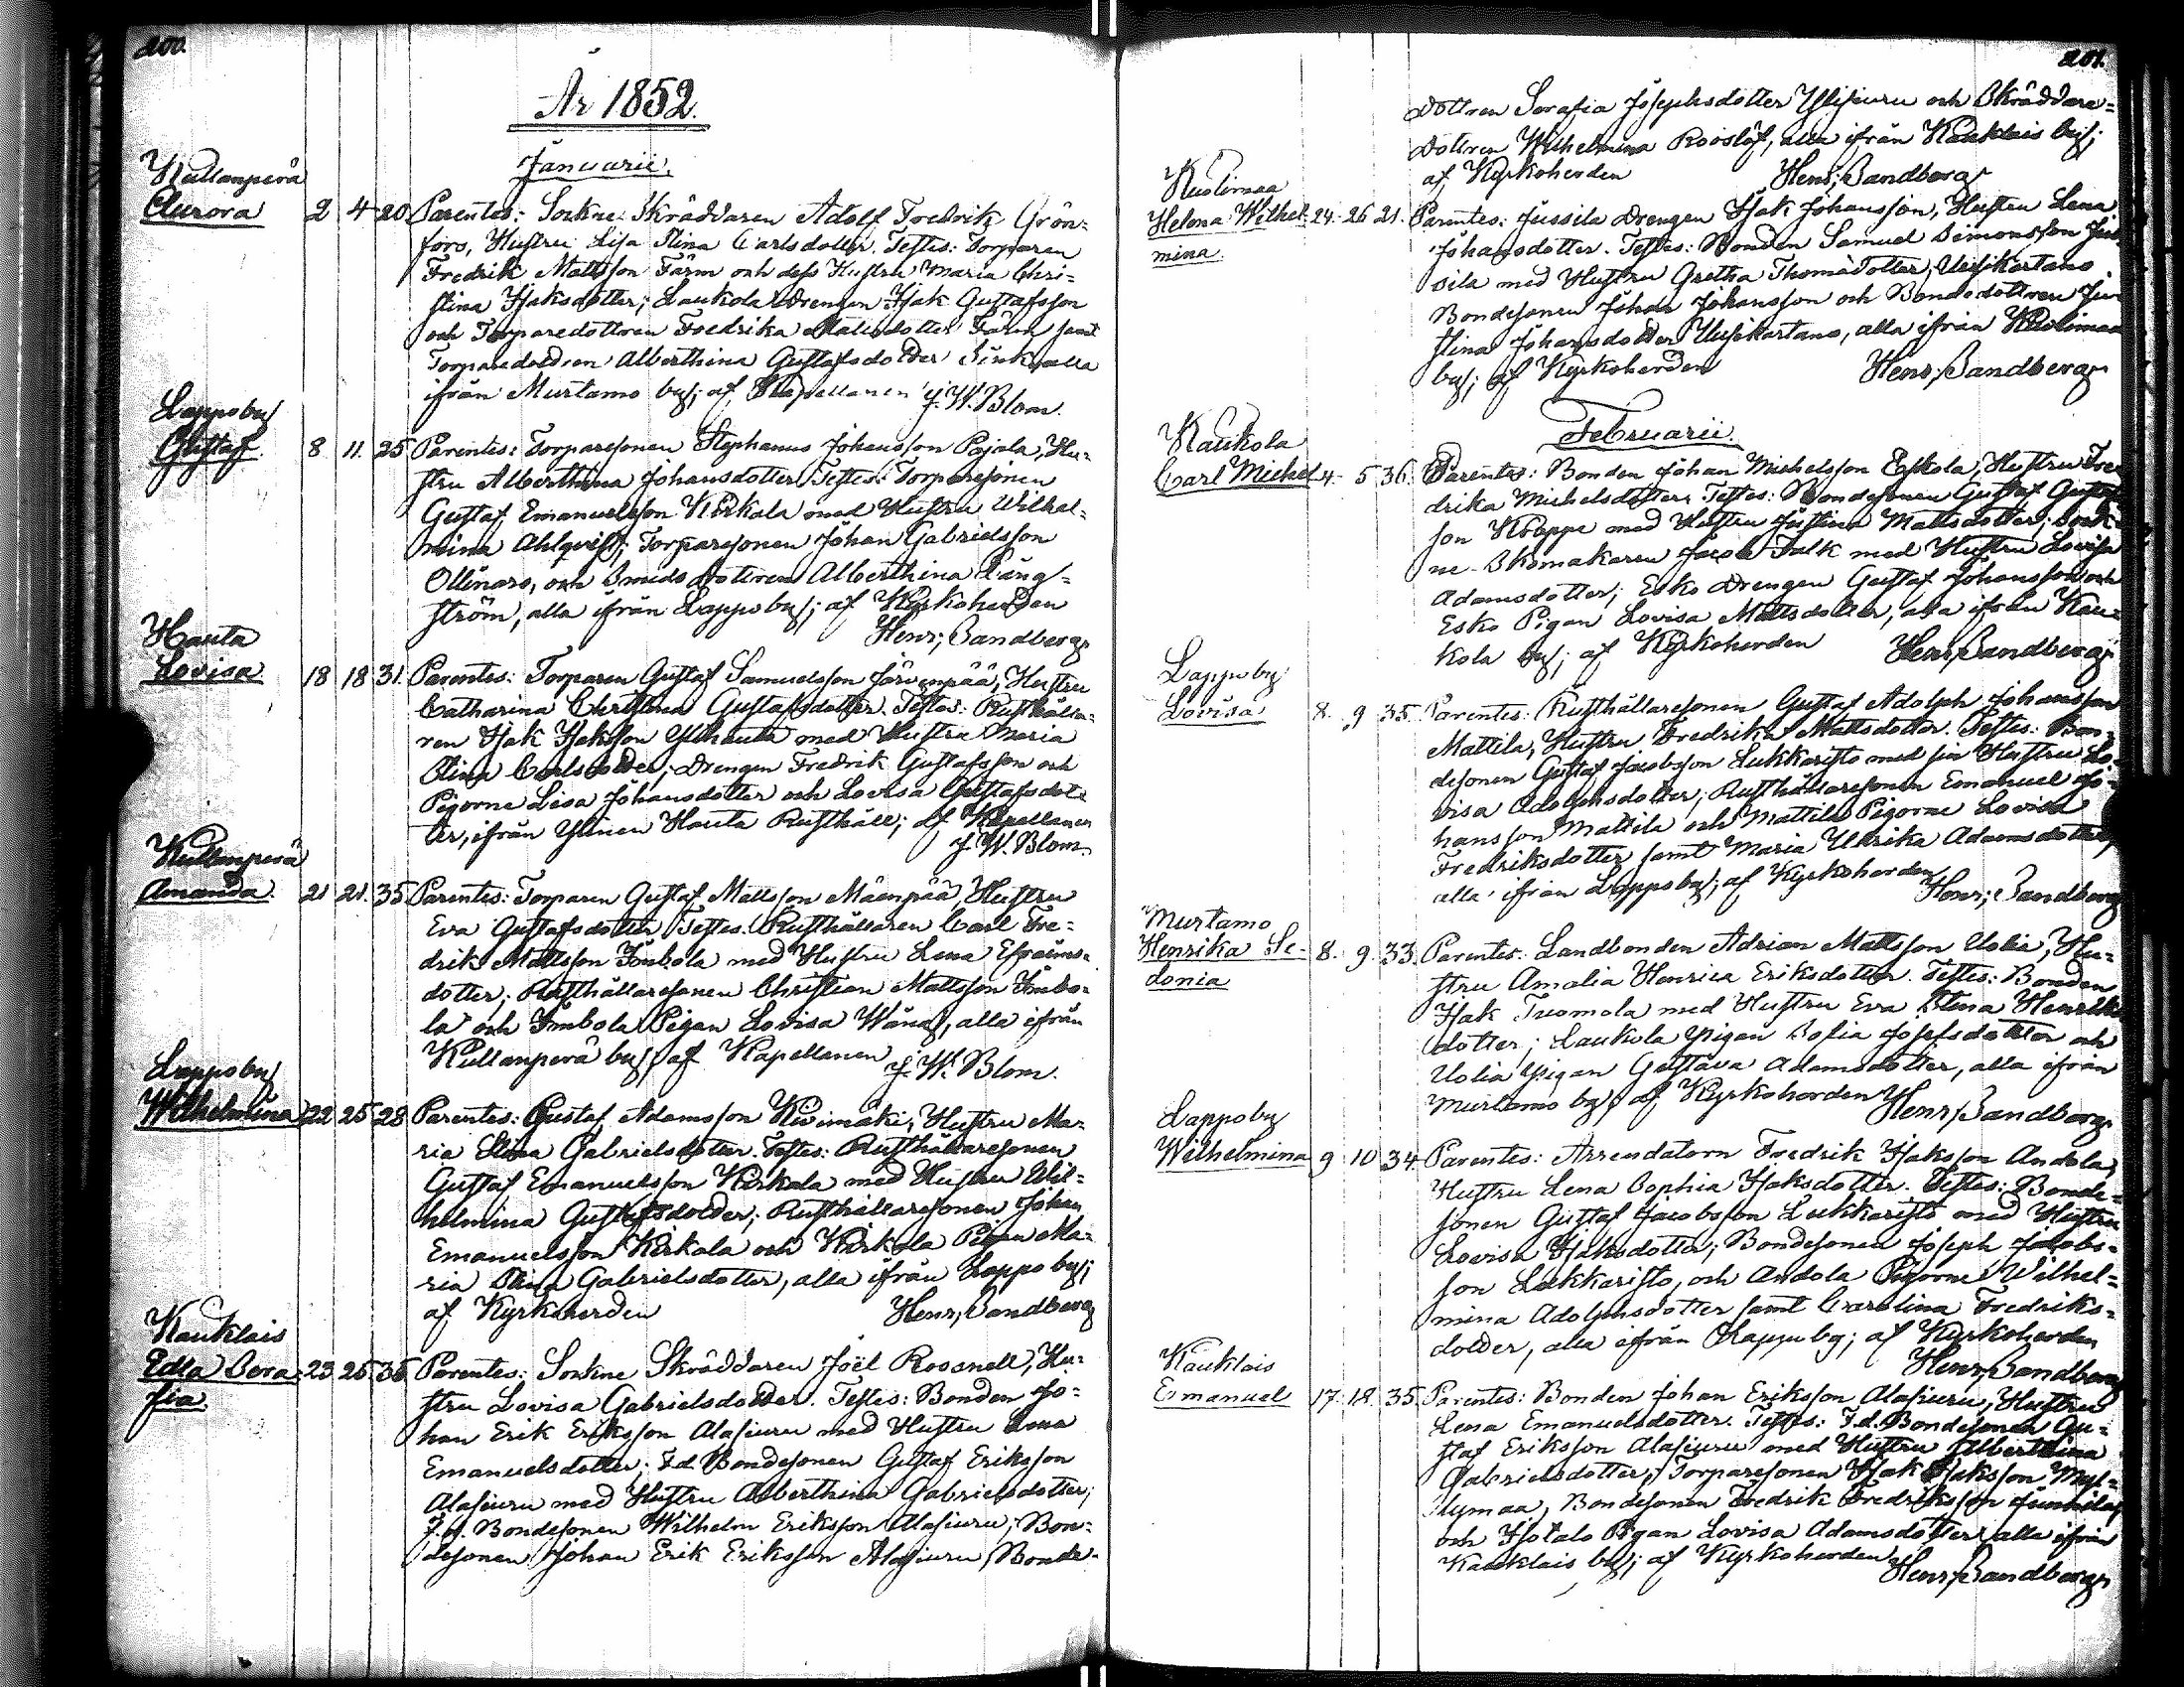 200.
År 1852.
Januarii.
Kullanperä
Aurora 2 4 20 Parentes: Sockne Skräddaren Adolf Fredrik Grön-
fors, Hustru Lisa Stina Carlsdotter. Testes: Torparen
Fredrik Mattsson Färm och dess Hustru Maria Chri-
stina Isaksdotter; Laukola Drengen Isak Gustafsson
och Torparedottren Fredrika Mattsdotter Färm samt
Torparedottren Alberthina Gustafsdotter alla
ifrån Murtamo by; af Kapellanen J. W. Blom.
Lappo by
Gustaf. 8 11. 25 Parentes: Torparesonen Stephanus Johansson Pajala, Hu-
stru Alberthina Johansdotter. Testes: Torparesonen
Gustaf Emanuelsson Kirkala med Hustru Wilhel-
mina Ahlqvist; Torparesonen Johan Gabrielsson
Ollinaro, och Smeds dottren Alberthina Läng-
ström, alla ifrån Lappo by; af Kyrkoherden
Henr; Sandberg
Hauta
Lovisa 18 18 31. Parentes: Torparen Gustaf Samuelsson Järvenpää, Hustru
Catharina Christina Gustafsdotter. Testes: Rusthålla-
ren Isak Isaksson Ylihauta med Hustru Maria
Stina Carlsdotter; Drengen Fredrik Gustafsson och
Pigorne Lisa Johansdotter och Lovisa Gustafsdot-
ter, ifrån Ylinen Hauta Rusthåll; af Kapellanen
J. W. Blom.
Kullanperä
Amanda. 21 21. 35 Parentes: Torparen Gustaf Mattsson Mäenpää, Hustru
Eva Gustafsdotter Testes. Rusthållaren Carl Fre-
drik Mattsson Imbola med Hustru Lena Efraims-
dotter; Rusthållaresonen Christian Mattsson Imbo-
la och Imbola Pigan Lovisa Wänä, alla ifrån
Kullanperä by; af Kapellanen J. W. Blom.
Lappo by
Wilhelmina 22 25 28 Parentes: Gustaf Adamsson Kivimäki, Hustru Ma-
ria Stina Gabrielsdotter. Testes: Rusthållaresonen
Gustaf Emanuelsson Kirkala med Hustru Wil-
helmina Gustafsdotter; Rusthållaresonen Johan
Emanuelsson Kirkala och Kirkala Pigan Ma-
ria Stina Gabrielsdotter, alla ifrån Lappo by;
af Kyrkoherden Henr; Sandberg
Kauklais
Edla Sera- 23 25 35 Parentes: Sockne Skräddaren Joël Roosnell, Hu-
fia. stru Lovisa Gabrielsdotter. Testes: Bonden Jo-
han Erik Eriksson Alasjuru med Hustru Lena
Emanuelsdotter; F.d. Bondesonen Gustaf Eriksson
Alasjuru med Hustru Alberthina Gabrielsdotter;
F.d. Bondesonen Wilhelm Eriksson Alasjuru, Bon-
desonen Johan Erik Eriksson Alasjuru, Bonde-
201.
dottren Serafia Josephsdotter Ylisjuru och Skräddare-
dottren Wilhelmina Rooslöf, alla ifrån Kauklais by;
af Kyrkoherden Henr; Sandberg
Kuolimaa
Helena Wilhel- 24. 26 21. Parentes: Jussila Drengen Isak Johansson, Hustru Lena
mina. Johansdotter. Testes: Bonden Samuel Simonsson Jus-
sila med Hustru Gretha Thomädotter, Uusikartano
Bondesonen Johan Johansson och Bondedottren Ju-
stina Johansdotter Uusikartano, alla ifrån Kuolimaa
by; af Kyrkoherden Henr; Sandberg
Februarii.
Kaukola
Carl Michel 4. 5 36. Parentes: Bonden Johan Michelsson Eskola, Hustru Fre-
drika Michelsdotter. Testes: Bondesonen Gustaf Gustaf-
son Knappe med Hustru Justina Mattsdotter; Sock-
ne Skomakaren Jacob Falk med Hustru Lovisa
Adamsdotter; Esko Drengen Gustaf Johansson och
Esko Pigan Lovisa Mattsdotter, alla ifrån Kau-
kola by; af Kyrkoherden Henr; Sandberg
Lappo by
Lovisa 8. 9 35. Parentes: Rusthållaresonen Gustaf Adolph Johansson
Mattila, Hustru Fredrika Mattsdotter. Testes: Bon-
desonen Gustaf Jacobsson Lukkaristo med sin Hustru Lo-
visa Adolphsdotter; Rusthållaresonen Emanuel Jo-
hansson Mattila och Mattila Pigorne Lovisa
Fredriksdotter samt Maria Ulrika Adamsdotter,
alla ifrån Lappo by; af Kyrkoherden
Henr; Sandberg
Murtamo
Henrika Se- 8. 9. 33. Parentes: Landbonden Adrian Mattsson Uolia, Hu-
donia stru Amalia Henrica Eriksdotter. Testes: Bonden
Isak Tuomola med Hustru Eva Stena Henriks
dotter; Laukola Pigan Sofia Josefsdotter och
Uolia Pigan Gustava Adamsdotter, alla ifrån
Murtamo by; af Kyrkoherden Henr; Sandberg
Lappo by
Wilhelmina 9 10 34 Parentes: Arrendatorn Fredrik Isaksson Andola,
Hustru Lena Sophia Isaksdotter. Testes: Bonde-
sonen Gustaf Jacobsson Lukkaristo med Hustru
Lovisa Isaksdotter; Bondesonen Joseph Jacobs-
son Lukkaristo, och Andola Pigorne Wilhel-
mina Adolphsdotter samt Carolina Fredriks-
dotter, alla ifrån Lappo by; af Kyrkoherden
Henr; Sandberg
Kauklais
Emanuel 17. 18. 35. Parentes: Bonden Johan Eriksson Alasjuru, Hustru
Lena Emanuelsdotter. Testes: F.d. Bondesonen Gu-
staf Eriksson Alasjuru med Hustru Alberthina
Gabrielsdotter; Torparesonen Isak Isaksson Myl-
lymaa, Bondesonen Fredrik Fredriksson Junnila,
och Isotalo Pigan Lovisa Adamsdotter, alla ifrån
Kauklais by; af Kyrkoherden
Henr; Sandberg